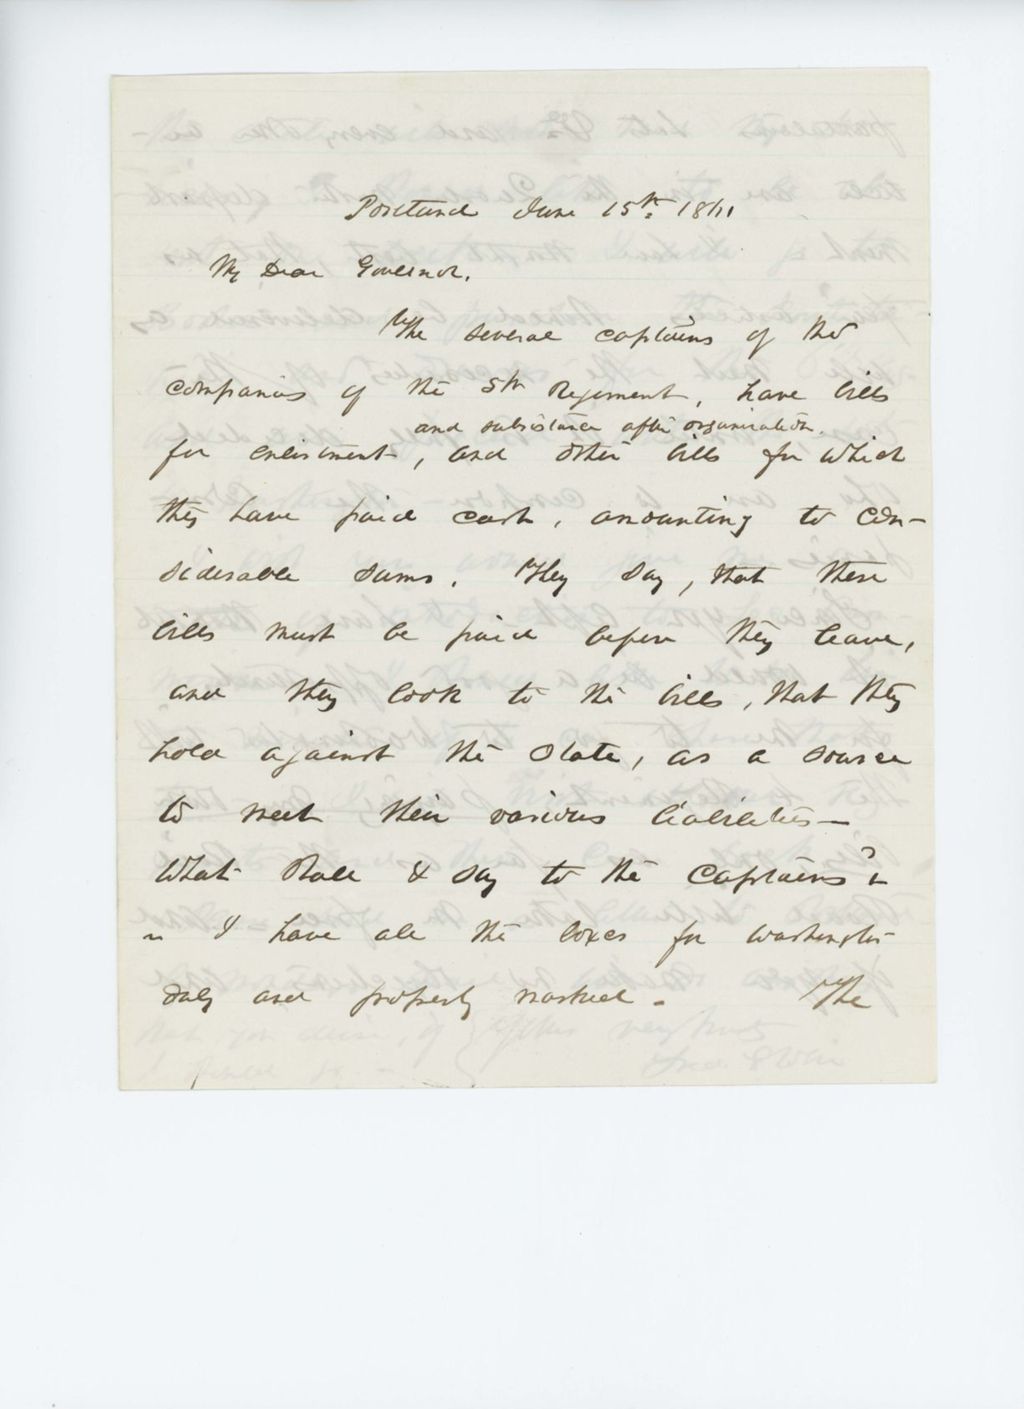 Portland June 15th 1861
My Dear Governor.
The several captains of the
companies of the 5th Regiment, have bills
and subsistence after organization.
for enlistment, and other bills for which
they have paid cash, amounting to con-
siderable sums. They say, that these
bills must be paid before they leave,
and they look to the bills, that they
hold against the State, as a source
to meet their various liabilities —
What shall I say to the Captains?
I have all the boxes for Washington
duly and properly marked - The